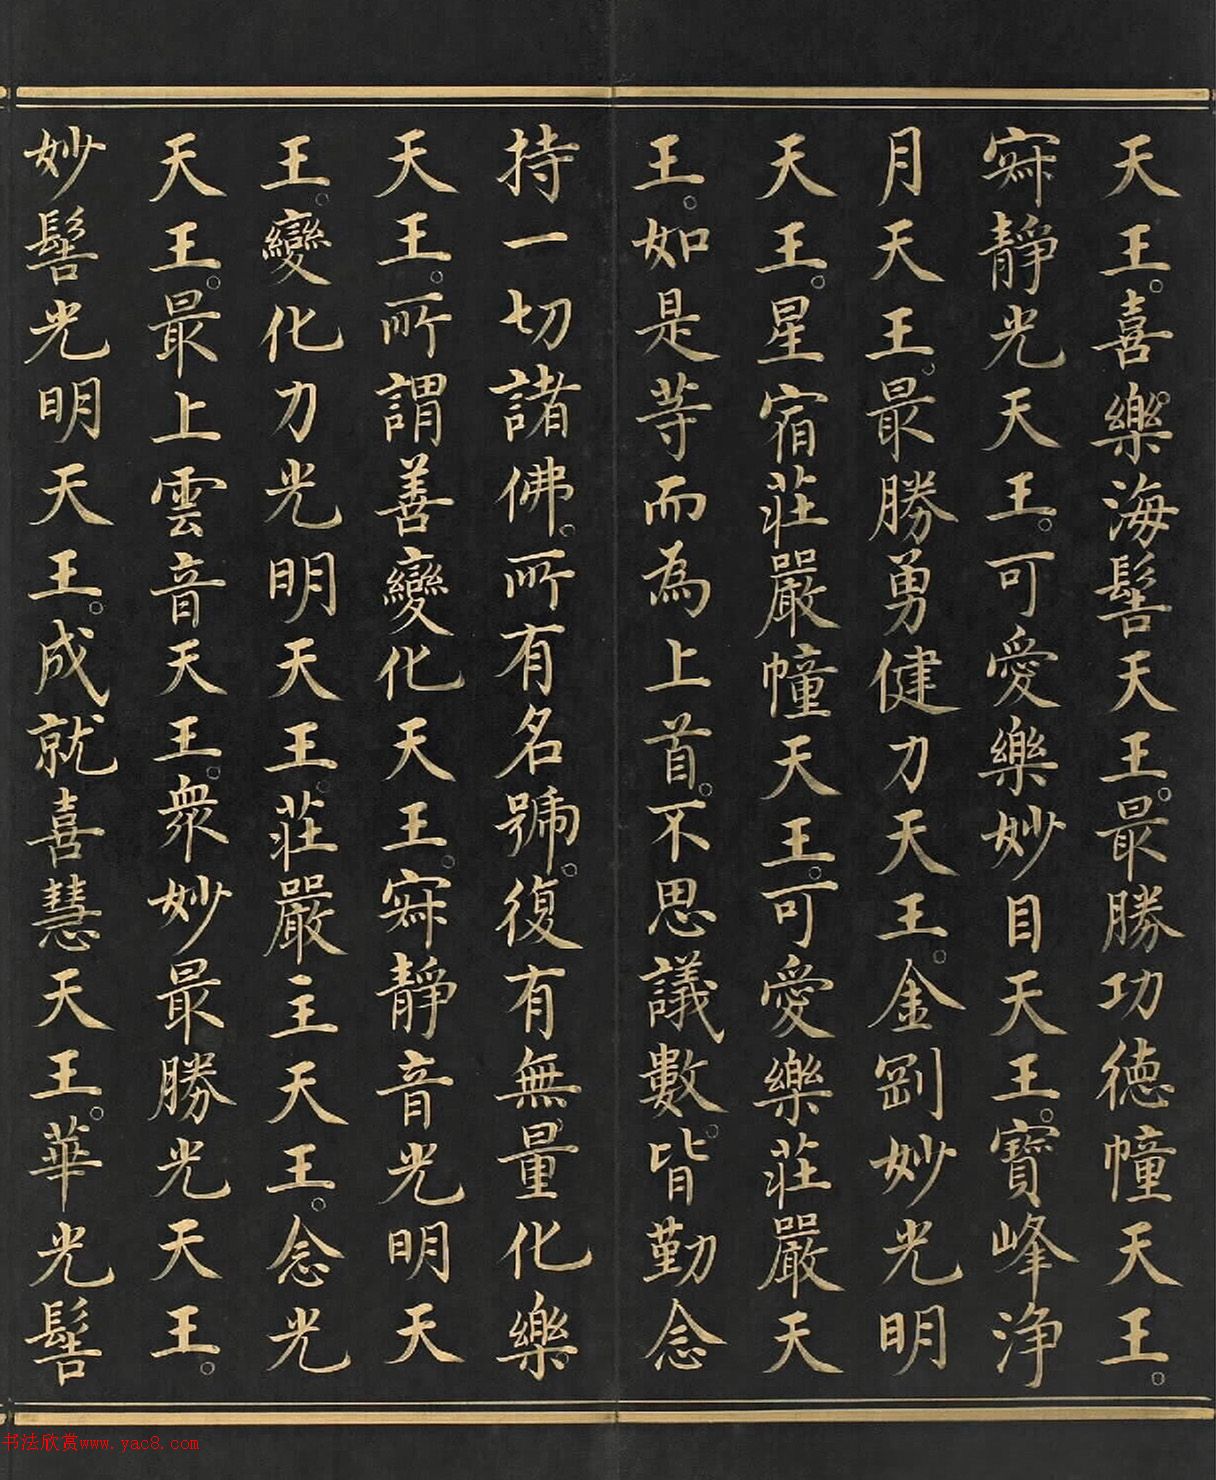 天王。喜樂海髻天王。最勝功德幢天王。
寂靜光天王。可愛樂妙目天王。寶峰淨
月天王。最勝勇健力天王。金剛妙光明
天王。星宿莊嚴幢天王。可愛樂莊嚴天
王。如是等而為上首。不思議數。皆勤念
持一切諸佛。所有名號。復有無量化樂
天王。所謂善變化天王。寂靜音光明天
王。變化力光明天王。莊嚴主天王。念光
天王。最上雲音天王。眾妙最勝光天王。
妙髻光明天王。成就喜慧天王。華光髻
书法欣赏www.yac8.com